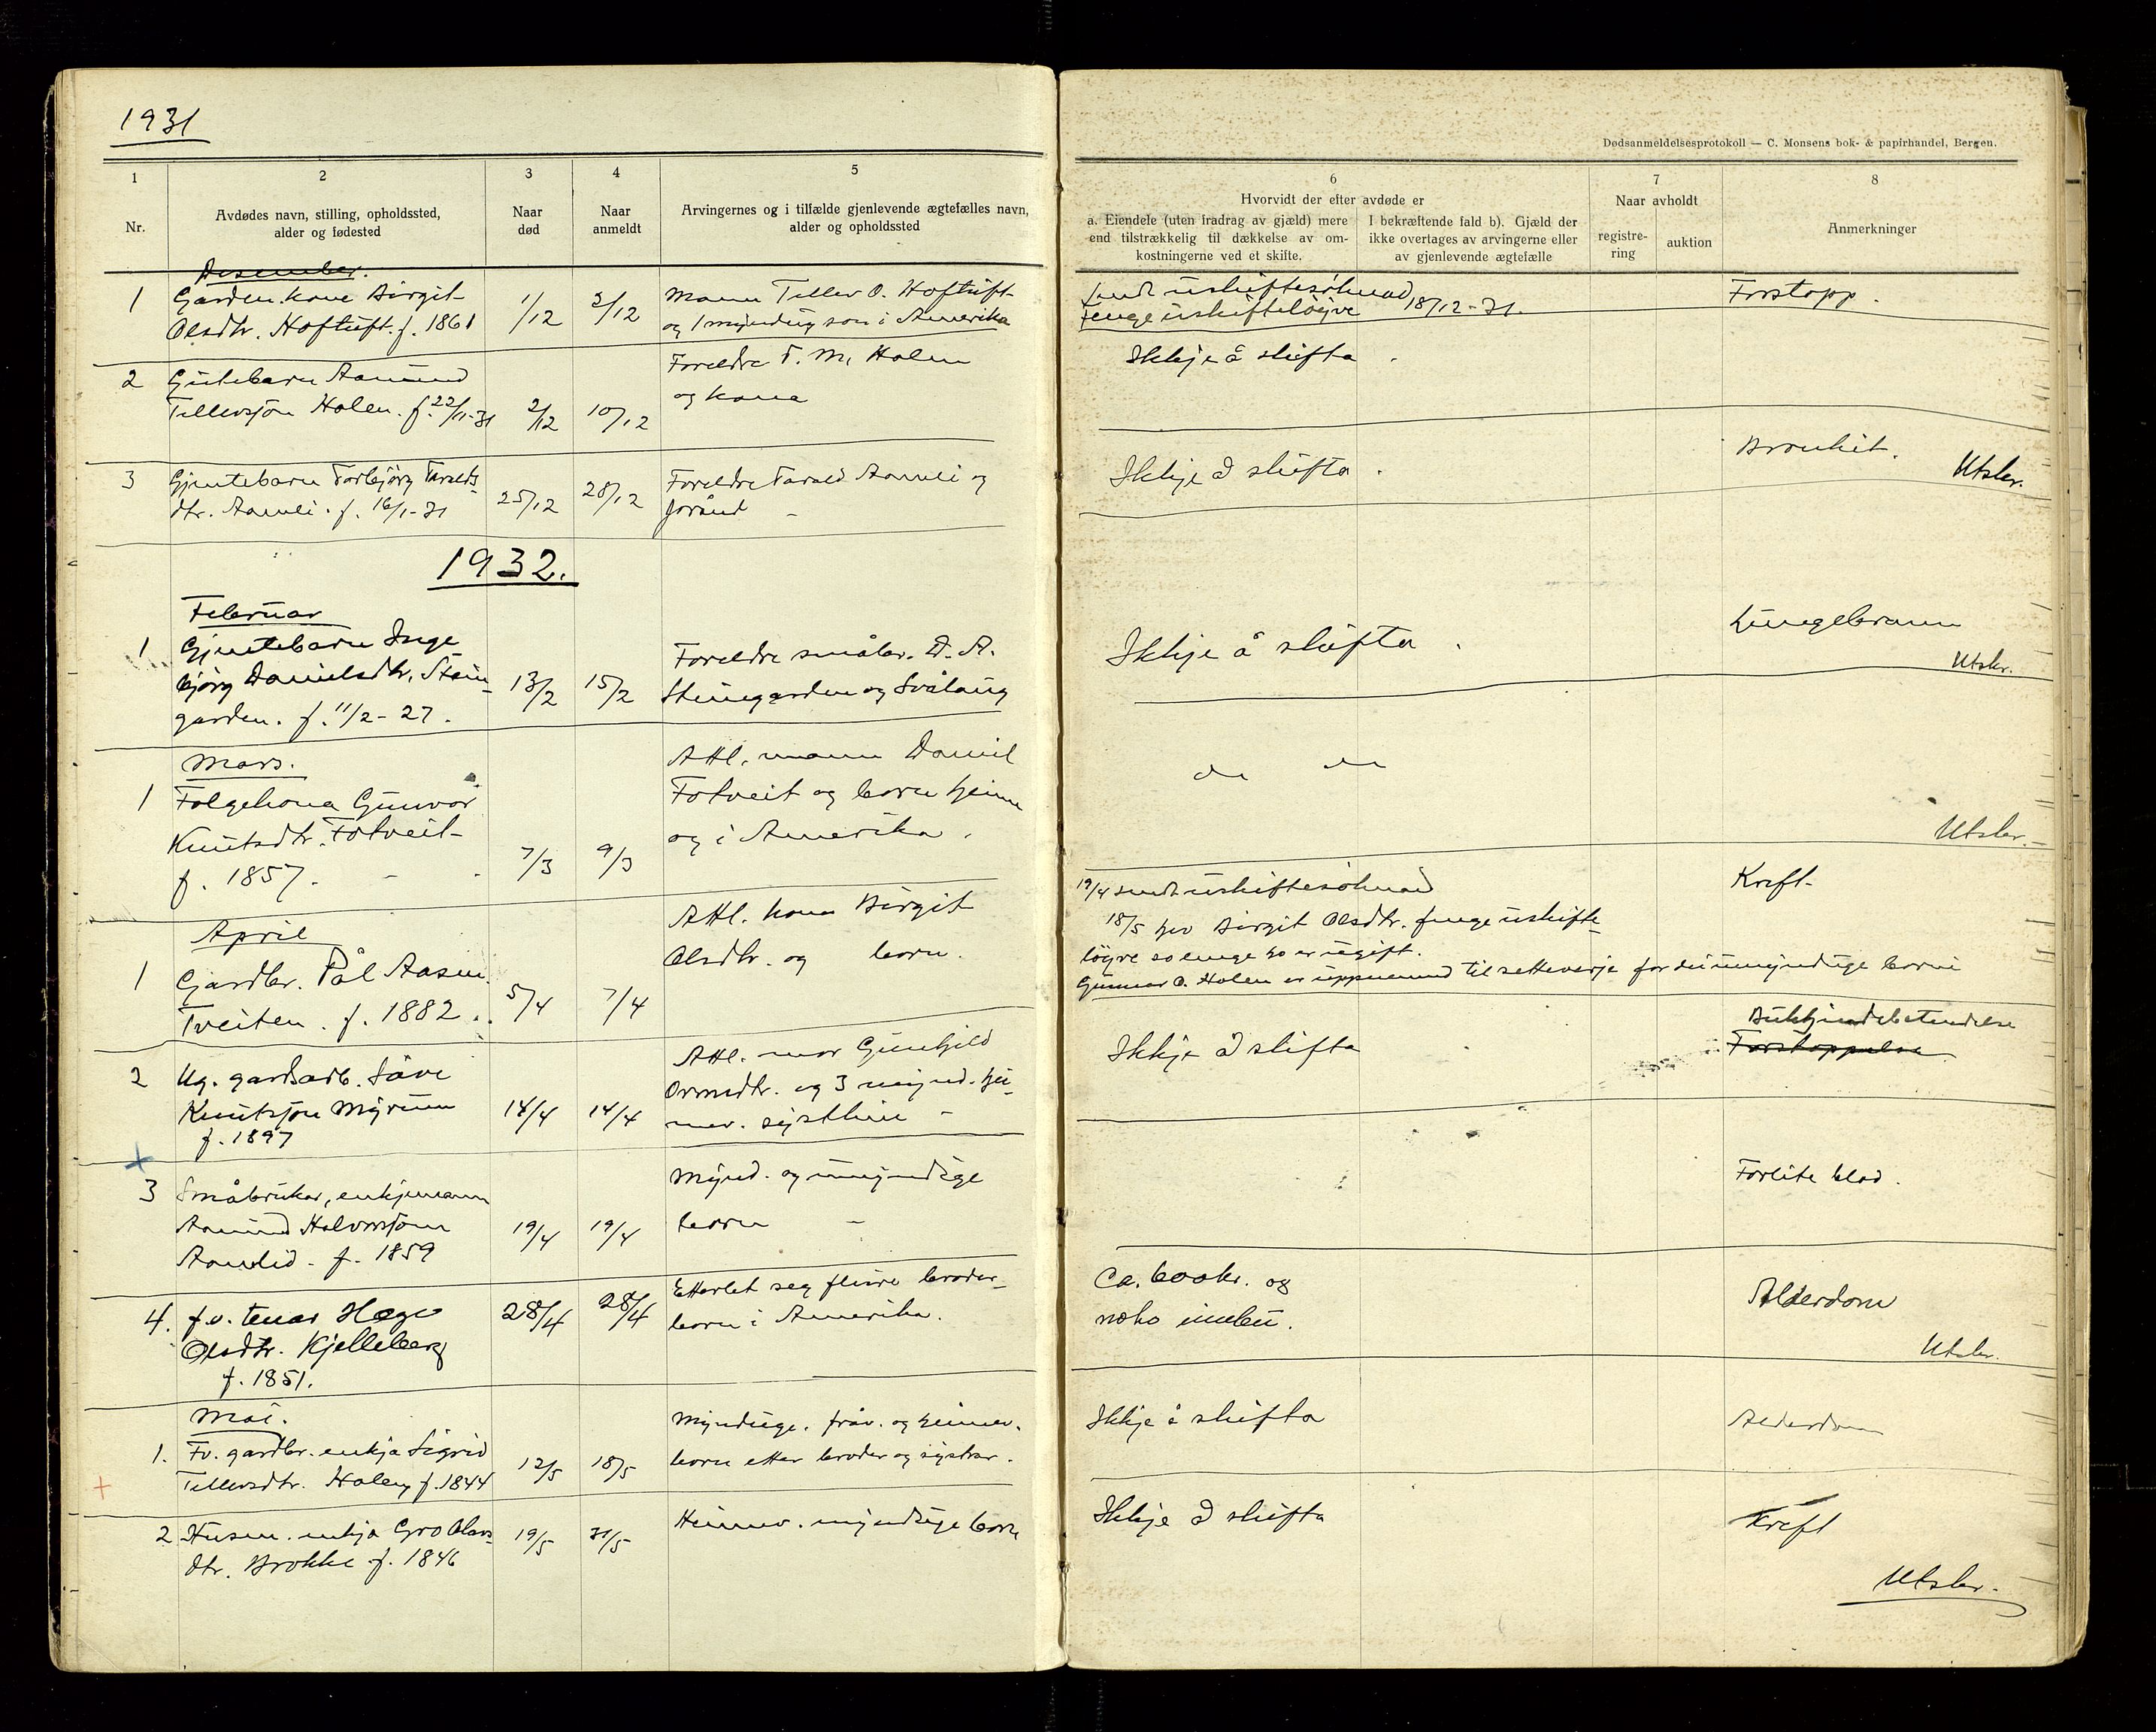 1931
Dødsanmeldelsesprotokoll — C. Monsens bok- & papirhandel, Bergen.
1
2
3
4
5
6
7
8
Nr.
Avdødes navn, stilling, opholdssted,
alder og fødested
Naar
død
Naar
anmeldt
Arvingernes og i tilfælde gjenlevende ægtefælles navn,
alder og opholdssted
Hvorvidt der efter avdøde er
a. Eiendele (uten fradrag av gjæld) mere
end tilstrækkelig til dækkelse av om-
kostningerne ved et skifte.
I bekræftende fald b). Gjæld der
ikke overtages av arvingerne eller
av gjenlevende ægtefælle
Naar avholdt
registre-
ring
auktion
Anmerkninger
Desember.
1 Garden.kone Birgit
Olsdtr. Hoftuft. f. 1861
1/12 3/12
Mann Tellev O. Hoftuft
og 1 myndig son i Amerika
Sendt uskiftesøknad
Fenge uskifteløyve 18/12-31.
Forstopp.
2 Gutebarn Aamund
Tellevsjon Holen. f. 22/11-31
2/12 10/12
Foreldre T. M. Holen
og kona
Ikkje å skifta.
3 Gjentebarn Torbjørg Taralds-
dtr. Aamli. f. 16/1-31
25/12 28/12
Foreldre Tarald Aamli og
Jorånd -
Ikkje å skifta.
Bronkit.
Utskr.
1932.
Februar
1 Gjentebarn Inge
björg Danielsdtr. Stein-
garden. f. 11/2-27.
13/2 15/2
Foreldre småbr. D. A.
Steingarden og Svålaug
Ikkje å skifta.
Lungebrann
Utskr.
Mars.
1 Folgekona Gunvor
Knutsdtr. Fotveit
f. 1857.
7/3 9/3
Attl. mann Daniel
Fotveit og born heime
og i Amerika.
do do
Utskr.
April
1 Gardbr. Pål Aasm.
Tveiten. f. 1882.
5/4 7/4
Attl. kona Birgit
Olsdtr. og born.
19/4 sendt uskiftesöknad
18/5 hev Birgit Olsdtr. fenge uskifte-
löyve so lenge ho er ugift.
Gunnar O. Holen er uppnemnd til setteverje for dei umyndige borni
Kreft
2 Ug. gardsarb. Såvi
Knutsjon Myrum
f. 1897
14/4 14/4
Attl. mor Gunhild
Ormsdtr. og 3 mynd. hei-
mev. systkin -
Ikkje å skifta
Bukhindebetendelse
Forstoppelse
3 Småbrukar, enkjemann
Aamund Halvorsjonn
Aamlid. f. 1859
19/4 19/4
Mynd. og umyndige
born -
Forlite blod.
4. f.v. tenar Hæge
Olsdtr. Kjelleberg
f. 1851.
28/4 28/4
Etterlet seg fleire broder-
born i Amerika.
Ca. 600 kr. og
noko innbu.
Alderdom
Utskr.
Mai.
1. Fv. gardbr. enkja Sigrid
Tellevsdtr. Holen f. 1844
12/5 18/5
Myndige. fråv. og heimev.
born etter broder og systrar.
Ikkje å skifta
Alderdom
2 Husm. enkja Gro Olavs-
dtr. Brokke f. 1846
19/5 31/5
Heimev. myndige born
Ikkje å skifta
Kreft
Utskr.